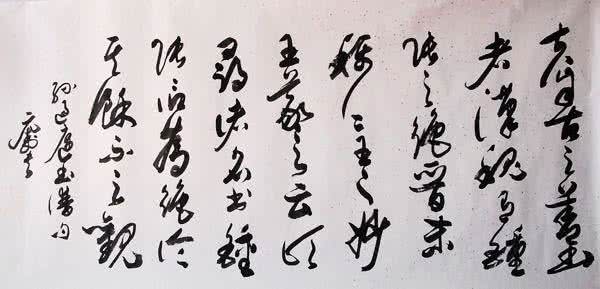 夫自古之善書
者漢魏有鍾
張之絕晉末
稱二王之妙
王羲之云頃
尋諸名書鍾
張信為絕倫
其餘不足觀
孫過庭書譜句